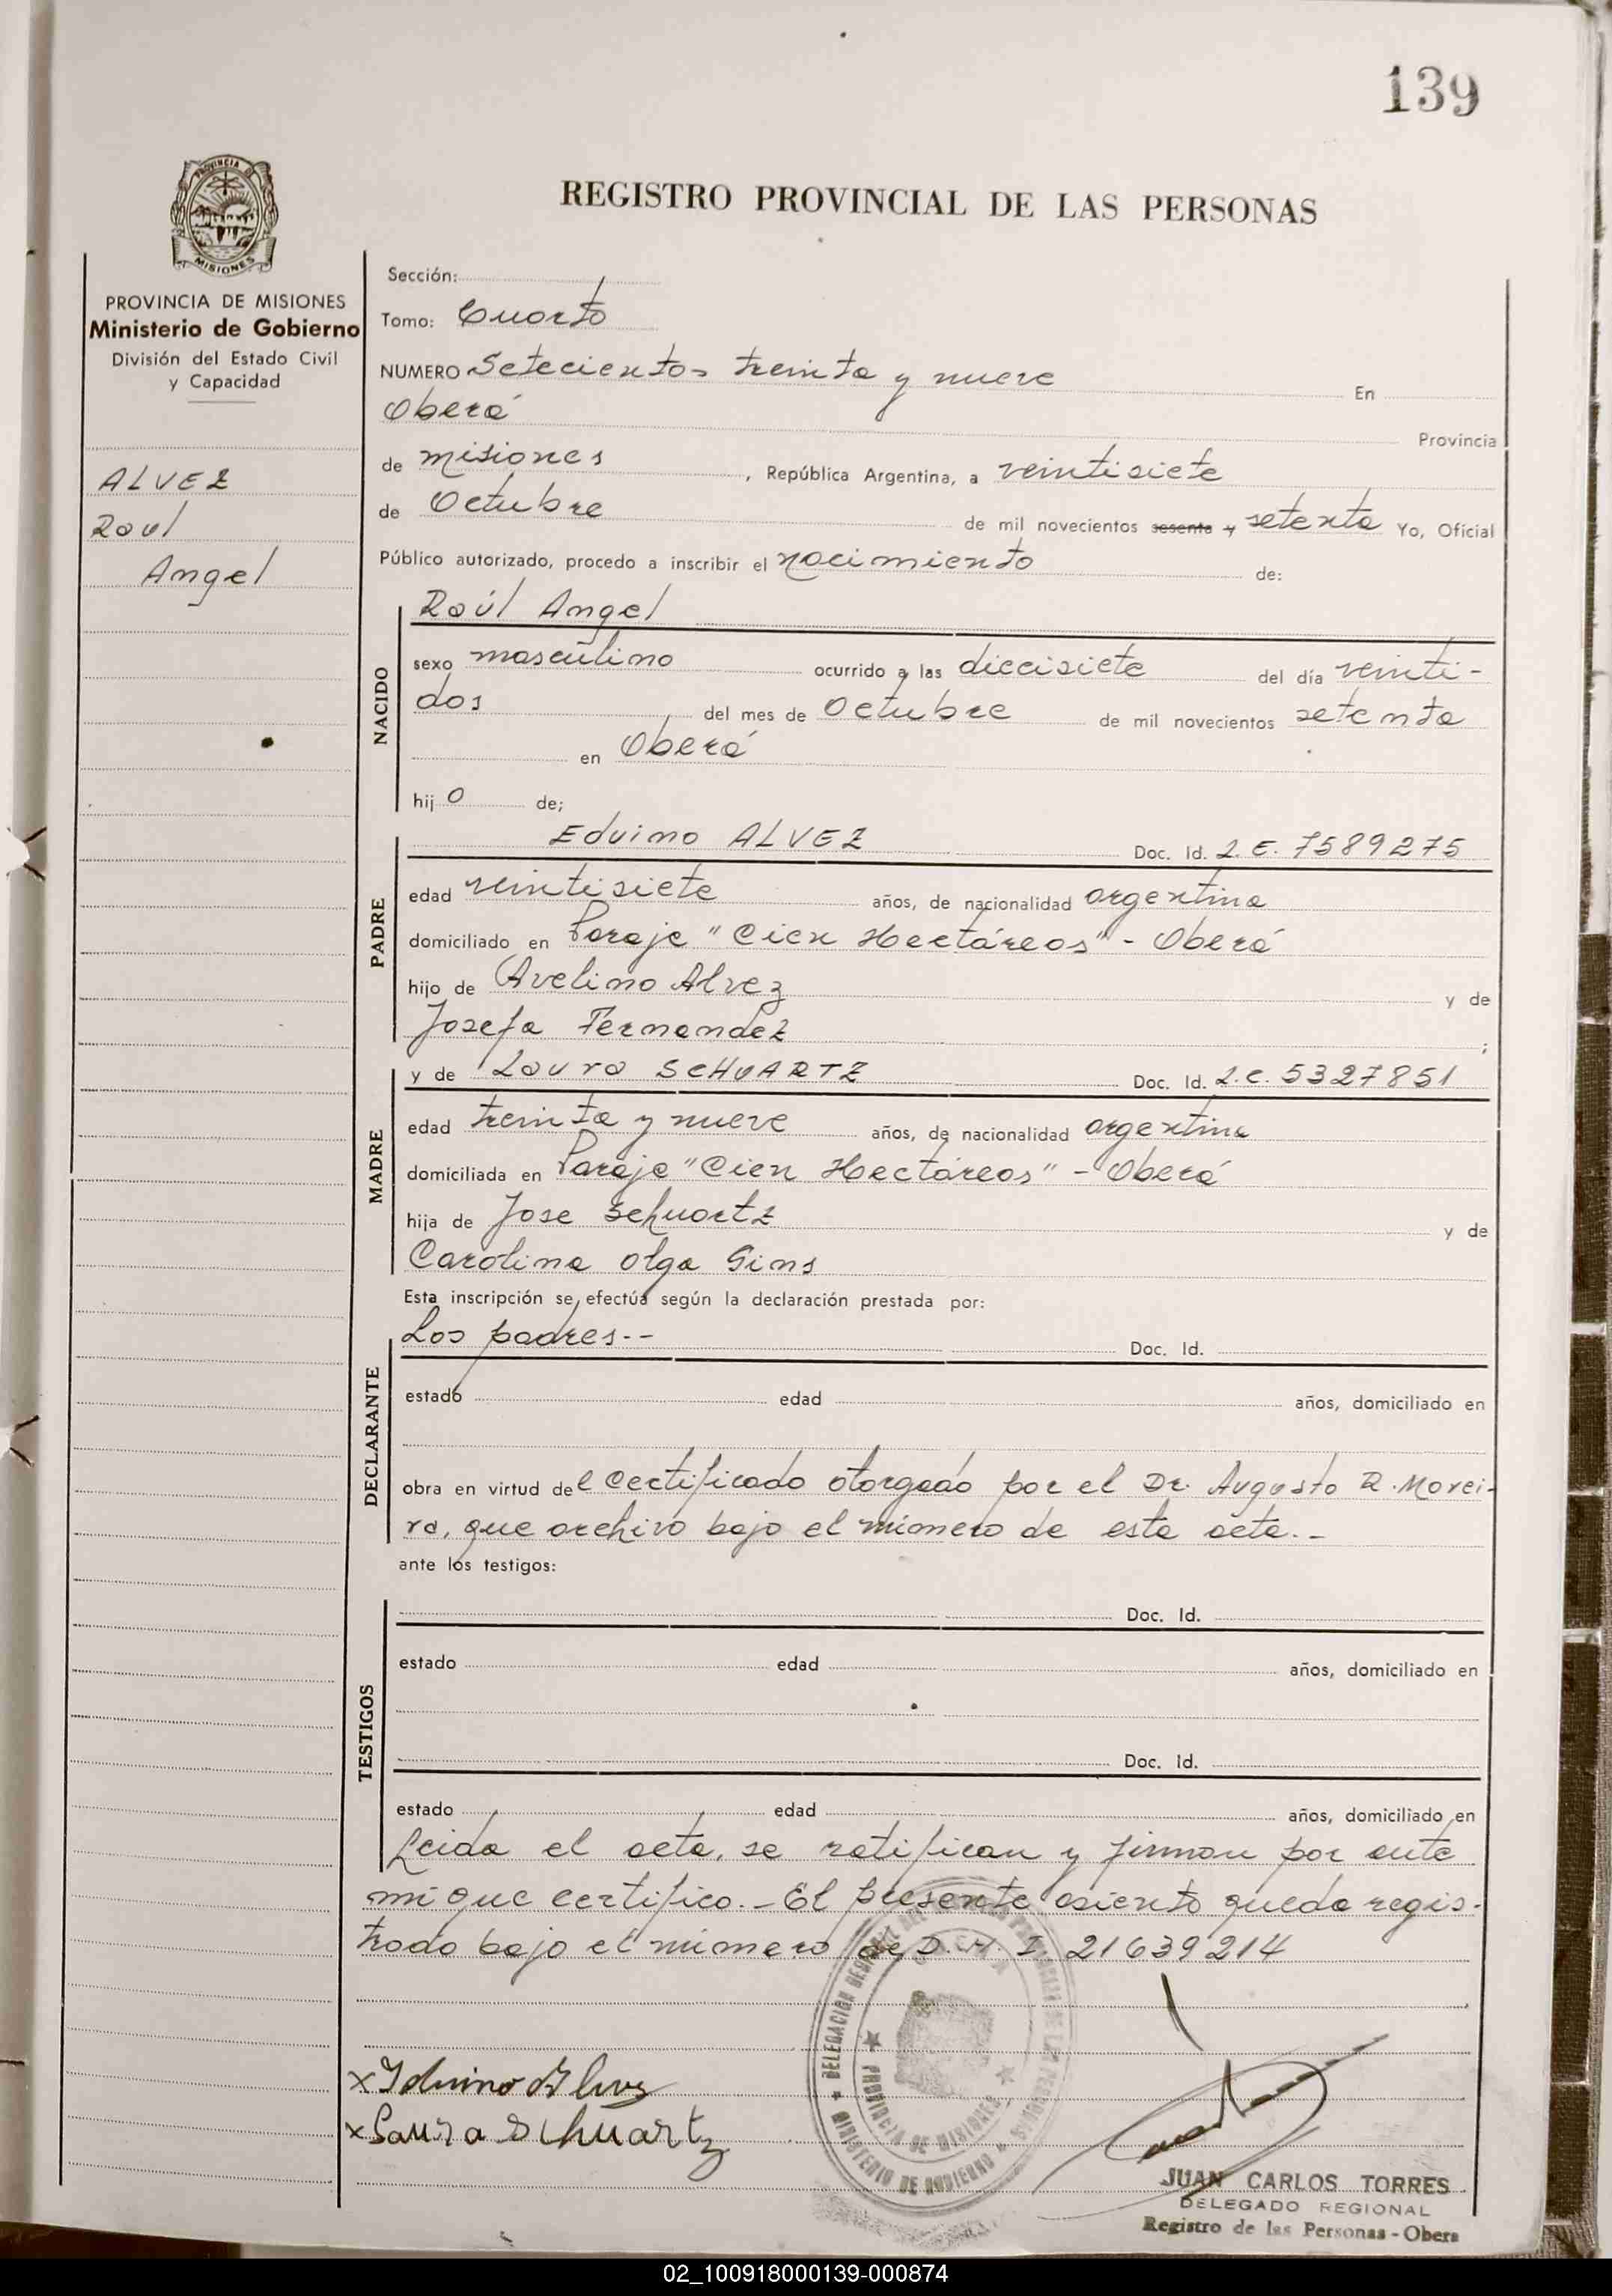 139
REGISTRO PROVINCIAL DE LAS PERSONAS
PROVINCIA
MISIONES
PROVINCIA DE MISIONES
Ministerio de Gobierno
División del Estado Civil
y Capacidad
ALVEZ
Raul
Angel
Sección:
Tomo: Cuarto
NUMERO Setecientos treinta y nueve En
Oberá Provincia
de misiones, República Argentina, a veintisiete
de Octubre de mil novecientos sesenta y setenta Yo, Oficial
Público autorizado, procedo a inscribir el nacimiento de:
Raúl Angel
NACIDO
sexo masculino ocurrido a las diecisiete del día veinti-
dos del mes de Octubre de mil novecientos setenta
en Oberá
hijo de;
PADRE
Eduino ALVEZ Doc. Id. L.E. 7589275
edad veintisiete años, de nacionalidad argentina
domiciliado en Paraje "Cien Hectáreas" - Oberá
hijo de Avelino Alvez y de
Josefa Fernandez ;
MADRE
y de Laura SCHUARTZ Doc. Id. L.C. 5327851
edad treinta y nueve años, de nacionalidad argentina
domiciliada en Paraje "Cien Hectáreas" - Oberá
hija de Jose Schuartz y de
Carolina Olga Gins
Esta inscripción se efectúa según la declaración prestada por:
DECLARANTE
Los padres.-- Doc. Id.
estado edad años, domiciliado en
obra en virtud del certificado otorgado por el Dr. Augusto R. Morei-
ra, que archivo bajo el número de esta acta.-
ante los testigos:
TESTIGOS
Doc. Id.
estado edad años, domiciliado en
Doc. Id.
estado edad años, domiciliado en
Leida el acta, se ratifican y firman por ante
mi que certifico.- El presente asiento queda regis-
trado bajo el número de D.N.I. 21639214
x Eduino Alvez
x Laura Schuartz
PROVINCIA DE MISIONES
MINISTERIO DE GOBIERNO
JUAN CARLOS TORRES
DELEGADO REGIONAL
Registro de las Personas - Obera
02_100918000139-000874